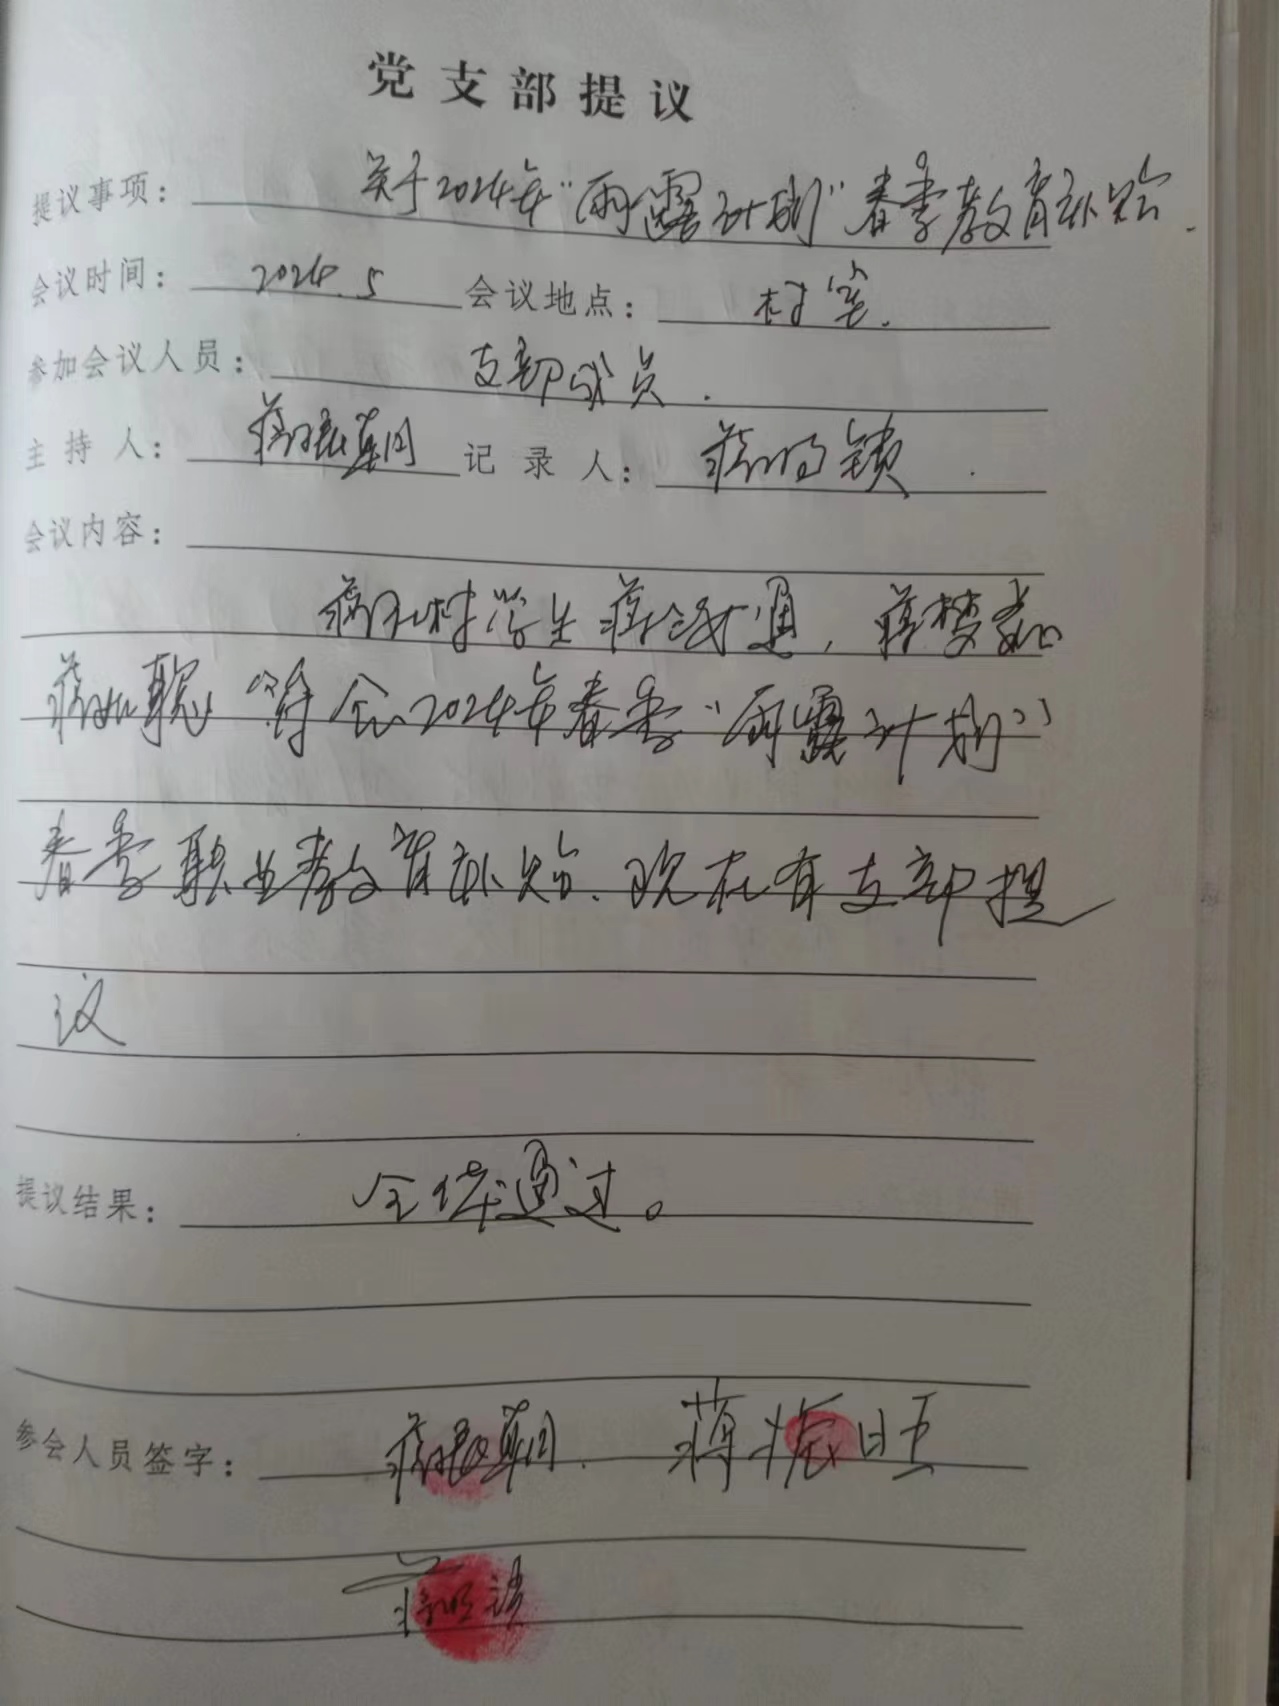 党支部提议
提议事项： 关于2024年“雨露计划”春季教育补贴.
会议时间： 2024.5 会议地点： 村室.
参加会议人员： 支部成员.
主持人： 蒋振 记录人： 蒋 锁.
会议内容：
村学生蒋 通，蒋梦
聪 符合2024年春季“雨露计划”
春季职业教育补贴.现在有支部提
议
提议结果： 全体通过。
参会人员签字： 蒋振 . 蒋振旺
蒋 锁